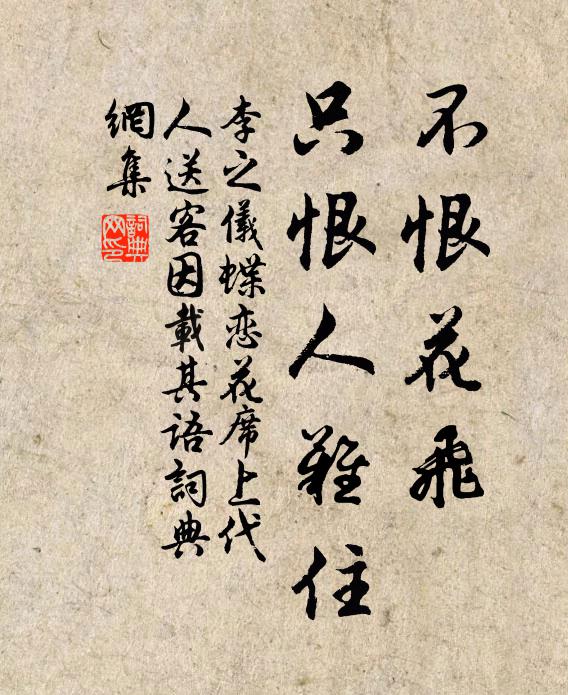 不恨花飛
只恨人難住
李之儀蝶恋花席上代
人送客因載其語詞典
網集
詞典
网印